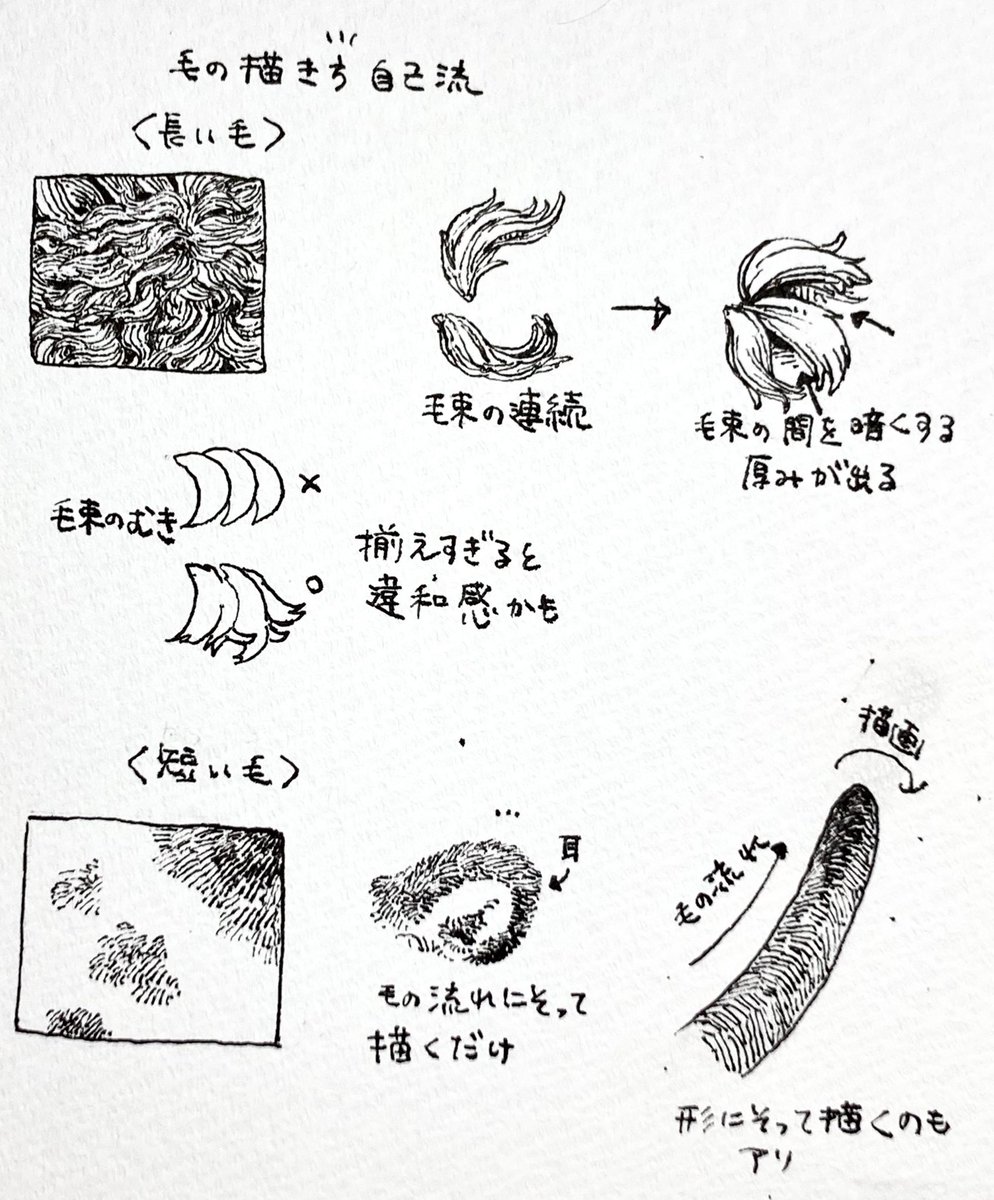 毛の描き方 自己流
〈長い毛〉
毛束の連続
毛束の間を暗くする
厚みが出る
毛束のむき
×
○
揃えすぎると
違和感かも
〈短い毛〉
耳
毛の流れにそって
描くだけ
描画
毛の流れ
形にそって描くのも
アリ